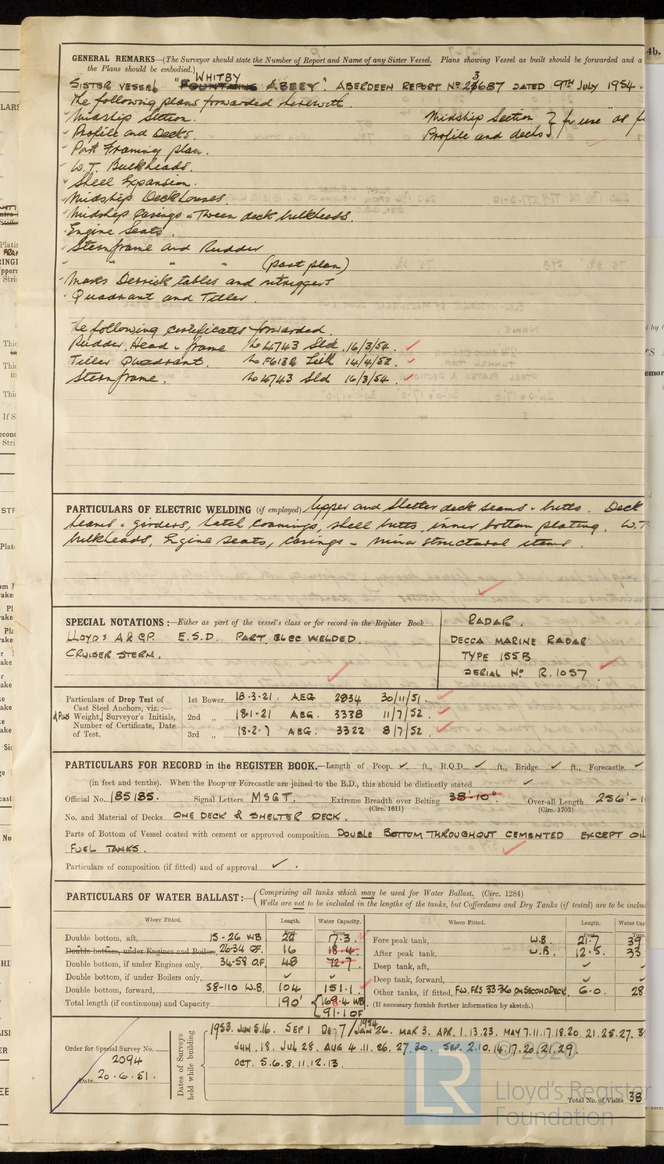 GENERAL REMARKS—(The Surveyor should state the Number of Report and Name of any Sister Vessel. Plans showing Vessel as built should be forwarded and a
the Plans should be embodied.)
WHITBY
SISTER VESSEL "FOUNTAINS ABBEY". ABERDEEN REPORT No 23687 DATED 9TH JULY 1954.
The following plans forwarded herewith.
Midship Section. Midship Section } for use
Profile and Decks. Profile and decks }
Part Framing plan.
W.T. Bulkheads.
Shell Expansion.
Midship Deckhouses.
Midship Casings & Tween deck bulkheads.
Engine Seats.
Sternframe and Rudder
" " " (part plan)
Masts Derrick tables and outriggers
Quadrant and Tiller.
The following certificates forwarded.
Rudder, Head & frame No 4743 Sld 16/3/54. ✓
Tiller Quadrant. No F6132 14/4/52. ✓
Sternframe. No 4743 Sld 16/3/54. ✓
PARTICULARS OF ELECTRIC WELDING (if employed) Upper and Shelter deck seams & butts. Deck
beams & girders, hatch coamings, shell butts, inner bottom plating. W.T
bulkheads, Engine seats, casings & minor structural items.
SPECIAL NOTATIONS:—Either as part of the vessel's class or for record in the Register Book. RADAR.
LLOYDS A & C.P. E.S.D. PART ELEC WELDED. DECCA MARINE RADAR
CRUISER STERN. TYPE 155B.
SERIAL No. R.1057.
Particulars of Drop Test of 1st Bower 18-3-21. AEG. 2934 30/11/51. ✓
Cast Steel Anchors, viz.:—
Weight, Surveyor's Initials, 2nd " 18-1-21 AEG. 3338 11/7/52. ✓
Number of Certificate, Date
of Test. 3rd " 18-2-7 AEG. 3322 8/7/52. ✓
PARTICULARS FOR RECORD in the REGISTER BOOK.—Length of Poop ✓ ft., R.Q.D. ✓ ft., Bridge ✓ ft., Forecastle ✓
(in feet and tenths). When the Poop or Forecastle are joined to the B.D., this should be distinctly stated ✓
Official No. 185185. Signal Letters MSGT. Extreme Breadth over Belting 38'-10" Over-all Length 256'-1
(Circ. 1611) (Circ. 1703)
No. and Material of Decks ONE DECK & SHELTER DECK.
Parts of Bottom of Vessel coated with cement or approved composition DOUBLE BOTTOM THROUGHOUT CEMENTED EXCEPT OIL
FUEL TANKS.
Particulars of composition (if fitted) and of approval ✓.
PARTICULARS OF WATER BALLAST:— Comprising all tanks which may be used for Water Ballast. (Circ. 1284)
Wells are not to be included in the lengths of the tanks, but Cofferdams and Dry Tanks (if tested) are to be inclu
Where Fitted. Length. Water Capacity. Where Fitted. Length. Water Cap
Double bottom, aft, 15-26 WB. 22 7.3 Fore peak tank, W.B. 21.7 39
Double bottom, under Engines and Boilers, 26-34 OF. 16 18.4 After peak tank, W.B. 12.5 33
Double bottom, if under Engines only, 34-58 O.F. 48 72.7 Deep tank, aft,
Double bottom, if under Boilers only, ✓ ✓ Deep tank, forward, ✓
Double bottom, forward, 58-110 W.B. 104 151.1 Other tanks, if fitted, F.W. FRS 33-36 ON SECOND DECK. 6.0 28
Total length (if continuous) and Capacity 190' 168.4 WB (If necessary furnish further information by sketch.)
91.1 OF
Order for Special Survey No. 2094
Date 20.6.51.
Dates of Surveys held while building
1953. JUN. 5.16. SEP 1 DEC 7 / 1954 JAN 26. MAR 3. APR. 1.13.23. MAY 7.11.17.18.20. 21.25.27.
JUN. 18. JUL 28. AUG 4.11.26. 27.30. SEP. 2.10.14.17.20.21.29.
OCT. 5.6.8.11.12.13.
Total No. of Visits 38
© 2020
LR
Lloyd's Register
Foundation